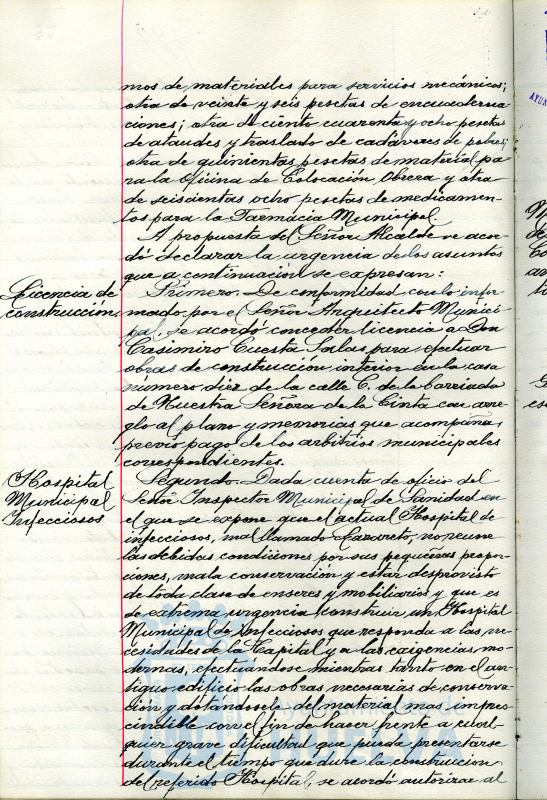 mos de materiales para servicios mecánicos;
otra de veinte y seis pesetas de encuaderna
ciones; otra de ciento cuarenta y ocho pesetas
de ataudes y traslado de cadáveres de pobres;
otra de quinientas pesetas de material pa
ra la Oficina de Colocación Obrera y otra
de seiscientas ocho pesetas de medicamen-
tos para la Farmacia Municipal.
A propuesta del Señor Alcalde se acor
dó declarar la urgencia de los asuntos
que a continuación se expresan:
Licencia de
construcción.
Primero. De conformidad con lo infor
mado por el Señor Arquitecto Munici
pal, se acordó conceder licencia a Don
Casimiro Cuesta Salas para efectuar
obras de construcción interior en la casa
número diez de la calle C. de la barriada
de Nuestra Señora de la Cinta con arre
glo al plano y memorias que acompaña,
previo pago de los arbitrios municipales
correspondientes.
Hospital
Municipal
Infecciosos
Segundo. Dada cuenta de oficio del
Señor Inspector Municipal de Sanidad en
el que se expone que el actual Hospital de
infecciosos, mal llamado Lazareto, no reune
las debidas condiciones por sus pequeñas propor-
ciones, mala conservación y estar desprovisto
de toda clase de enseres y mobiliarios y que es
de extrema urgencia construir un Hospital
Municipal de Infecciosos que responda a las ne
cesidades de la Capital y a las exigencias mo-
dernas, efectuándose mientras tanto en el an-
tiguo edificio las obras necesarias de conserva-
ción y dotándosele del material mas impres
cindible con el fin de hacer frente a cual-
quier grave dificultad que pueda presentarse
durante el tiempo que dure la construcción
del referido Hospital, se acordó autorizar al
Ayuntamiento de
HUELVA